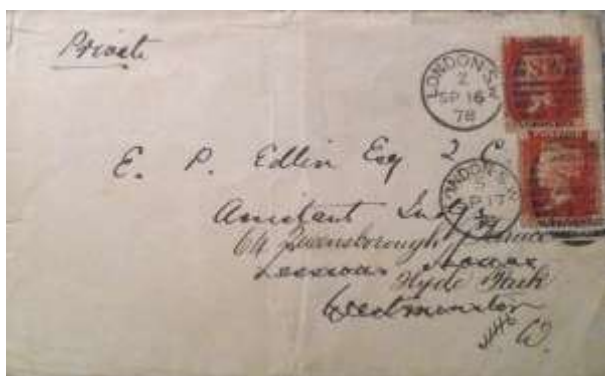 Private
LONDON S.W
2
SP 16
78
E. P. Edlin Esq Q C
LONDON S.W
5
SP 17
78
Assistant Judge
64 Queensborough Terrace
Sessions House
Hyde Park
Westminster
W.